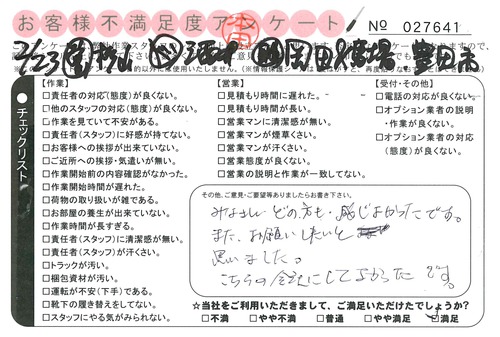 お客様不満足度アンケート
№ 027641
2/23
豊田市
チェックリスト
【作業】
□責任者の対応(態度)が良くない。
□他のスタッフの対応(態度)が良くない。
□作業を見ていて不安がある。
□責任者(スタッフ)に好感が持てない。
□お客様への挨拶が出来ていない。
□ご近所への挨拶・気遣いが無い。
□作業開始前の内容確認がなかった。
□作業開始時間が遅れた。
□荷物の取り扱いが雑である。
□お部屋の養生が出来ていない。
□作業時間が長すぎる。
□責任者(スタッフ)に清潔感が無い。
□責任者(スタッフ)が汗くさい。
□トラックが汚い。
□梱包資材が汚い。
□運転が不安(下手)である。
□靴下の履き替えをしてない。
□スタッフにやる気がみられない。
【営業】
□見積もり時間に遅れた。
□見積もり時間が長い。
□営業マンに清潔感が無い。
□営業マンが煙草くさい。
□営業マンが汗くさい。
□営業態度が良くない。
□営業の説明と作業が一致してない。
【受付・その他】
□電話の対応が良くない。
□オプション業者の説明
・作業が良くない。
□オプション業者の対応
(態度)が良くない。
その他、ご意見・ご要望等ありましたらお書き下さい。
みなさん どの方も 感じよかったです。
また、お願いしたいと
思いました。
こちらの会社にしてよかったです。
☆当社をご利用いただきまして、ご満足いただけたでしょうか?
□不満 □やや不満 □普通 □やや満足 □満足